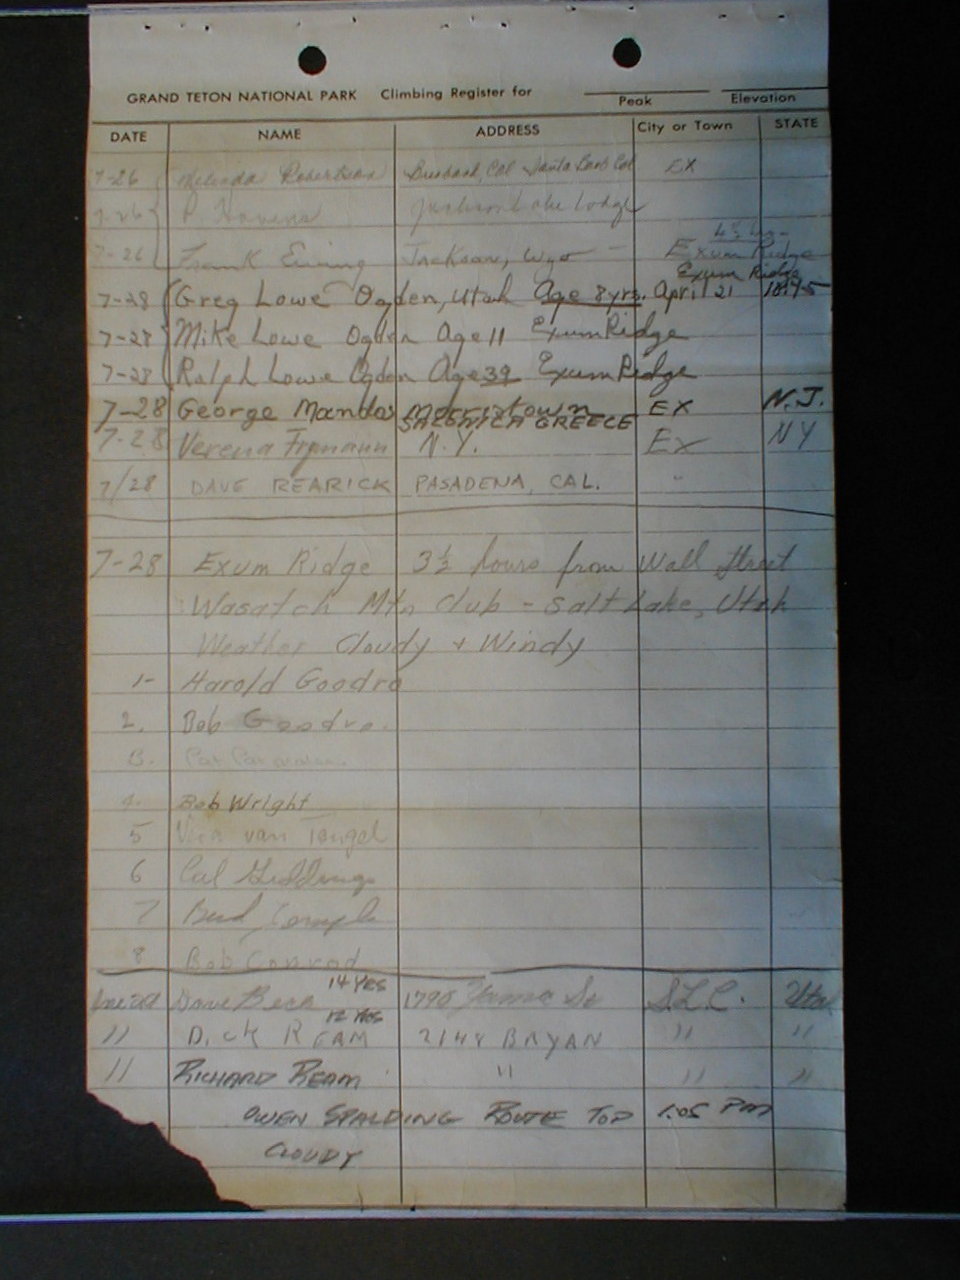 GRAND TETON NATIONAL PARK Climbing Register for
Peak Elevation
DATE NAME ADDRESS City or Town STATE
7-26 Melinda Burbank, Cal Santa Barb Cal EX
7-26 P. Havens Jackson Lake Lodge
4½ hrs
7-26 Frank Ewing Jackson, Wyo Exum Ridge
Exum Ridge
7-28 Greg Lowe Ogden, Utah Age 8yrs. April 21
7-28 Mike Lowe Ogden Age 11 Exum Ridge
7-28 Ralph Lowe Ogden Age 39 Exum Ridge
7-28 George Mandas Morristown EX N.J.
SALONICA GREECE
7-28 Verena N.Y. Ex NY
7/28 DAVE REARICK PASADENA, CAL. "
7-28 Exum Ridge 3½ hours from Wall Street
Wasatch Mtn Club - Salt Lake, Utah
Weather Cloudy + Windy
1- Harold Goodro
2. Bob Goodro.
3. Pat
4. Bob Wright
5 van Tengel
6 Cal Giddings
7 Bud Temple
8 Bob Conrad
14 YRS
Dave Beck 1798 So S.L.C. Utah
12 YRS
" Dick REAM 2148 BRYAN " "
" RICHARD REAM " " "
OWEN SPALDING ROUTE TOP 1:05 PM
CLOUDY